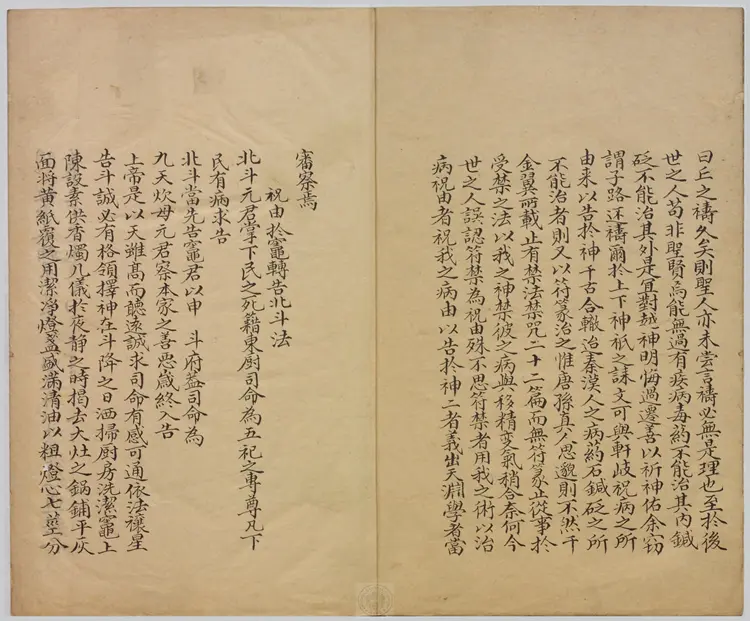 曰丘之禱久矣則聖人亦未嘗言禱必無是理也至於後
世之人苟非聖賢焉能無過有疾病毒药不能治其内鍼
砭不能治其外是宜對越神明悔過遷善以祈神佑余竊
謂子路述禱爾於上下神祇之誄文可與軒岐祝病之所
由来以告於神千古合轍迨秦漢人之病药石鍼砭之所
不能治者則又以符篆治之惟唐孫真人思邈則不然千
金翼所載止有禁法禁咒二十二篇而無符篆止從事於
受禁之法以我之神禁彼之病與移精变氣稍合奈何今
世之人誤認符禁為祝由殊不思符禁者用我之術以治
病祝由者祝我之病由以告於神二者義出天淵學者當
審察焉
祝由於竈轉告北斗法
北斗元君掌下民之死籍東厨司命為五祀之専尊凡下
民有病求告
北斗當先告竈君以申 斗府葢司命為
九天炊母元君察本家之善恶歲終入告
上帝是以天雖髙而聽遠誠求司命有感可通依法禳星
告斗誠必有格領擇神在斗降之日洒掃厨房洗潔竈上
陳設素供香燭几儀於夜静之時揭去大灶之鍋鋪平灰
面將黄紙覆之用潔淨燈盞盛滿清油以粗燈心七莖分